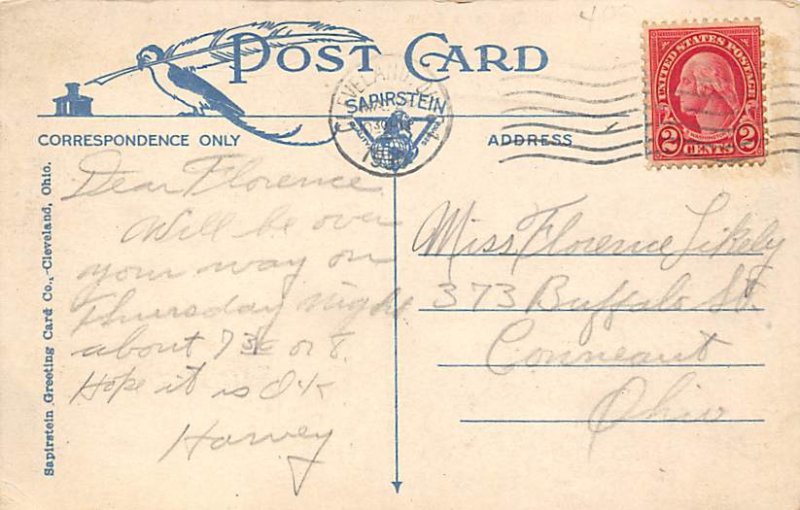 POST CARD
CLEVELAND, O.
SAPIRSTEIN
CORRESPONDENCE ONLY
ADDRESS
UNITED STATES POSTAGE
WASHINGTON
2 CENTS 2
Sapirstein Greeting Card Co.,-Cleveland, Ohio.
Dear Florence
Will be over
your way on
Thursday night
about 7 30 or 8.
Hope it is O.K
Harvey
Miss Florence Likely
373 Buffalo St.
Conneaut
Ohio